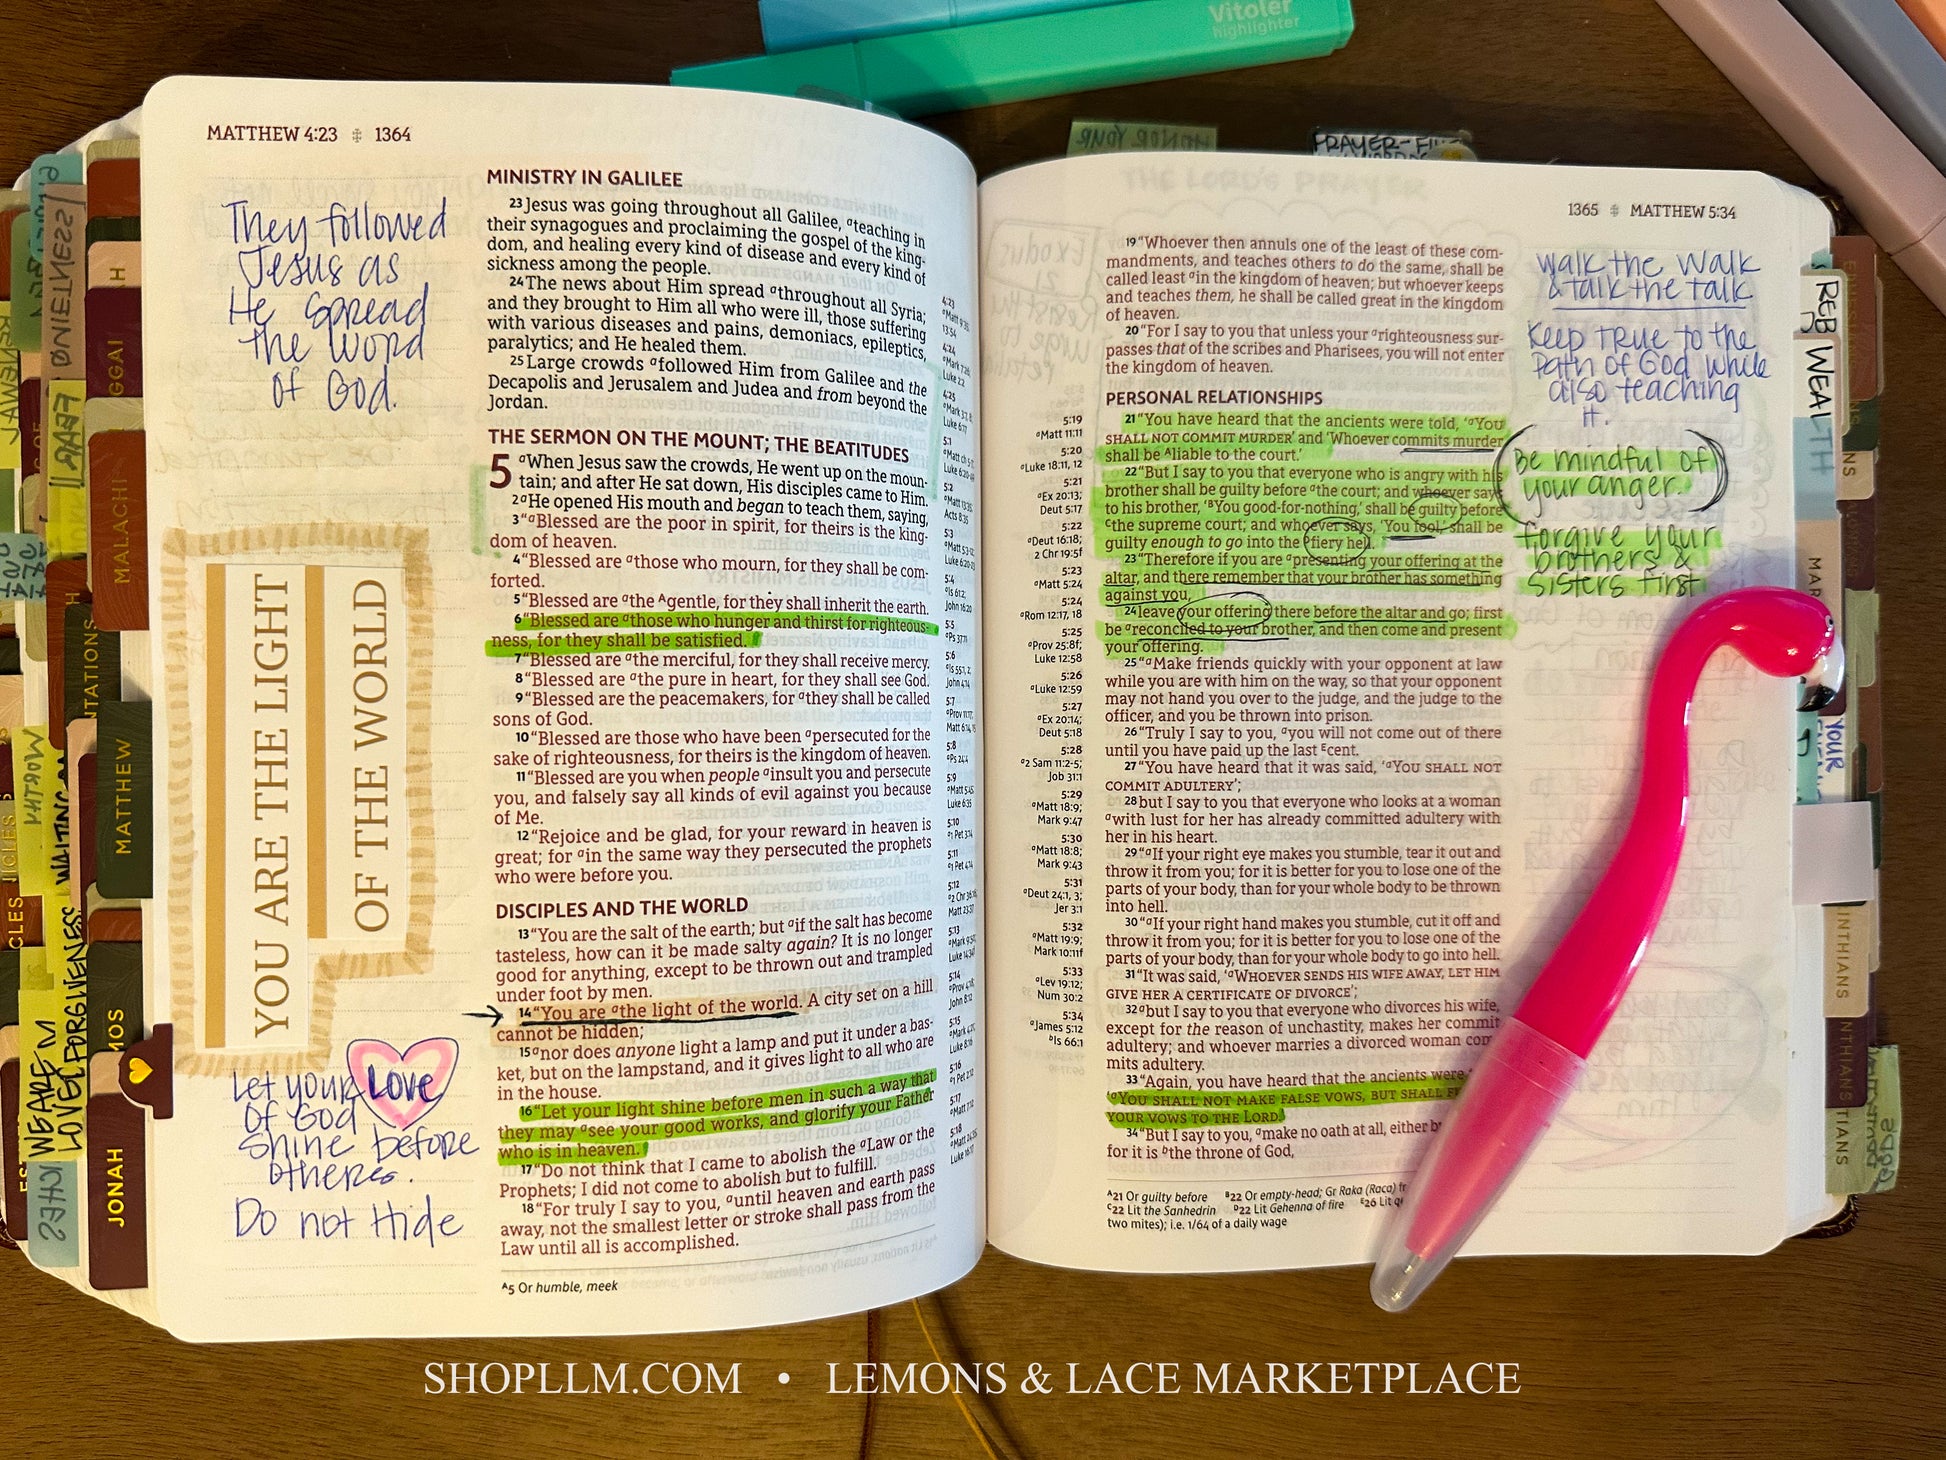 Vitoler
highlighter
MATTHEW 4:23 ⁜ 1364
They followed
Jesus as
He spread
the word
of God.
YOU ARE THE LIGHT
OF THE WORLD
Let your LOVE
of God
shine before
others.
Do not Hide
MINISTRY IN GALILEE
23 Jesus was going throughout all Galilee, ᵃteaching in
their synagogues and proclaiming the gospel of the king-
dom, and healing every kind of disease and every kind of
sickness among the people.
24 The news about Him spread ᵃthroughout all Syria;
and they brought to Him all who were ill, those suffering
with various diseases and pains, demoniacs, epileptics,
paralytics; and He healed them.
25 Large crowds ᵃfollowed Him from Galilee and the
Decapolis and Jerusalem and Judea and from beyond the
Jordan.
THE SERMON ON THE MOUNT; THE BEATITUDES
5 ᵃWhen Jesus saw the crowds, He went up on the moun-
tain; and after He sat down, His disciples came to Him.
2 ᵃHe opened His mouth and began to teach them, saying,
3 “ᵃBlessed are the poor in spirit, for theirs is the king-
dom of heaven.
4 “Blessed are ᵃthose who mourn, for they shall be com-
forted.
5 “Blessed are ᵃthe ᴬgentle, for they shall inherit the earth.
6 “Blessed are ᵃthose who hunger and thirst for righteous-
ness, for they shall be satisfied.
7 “Blessed are ᵃthe merciful, for they shall receive mercy.
8 “Blessed are ᵃthe pure in heart, for they shall see God.
9 “Blessed are the peacemakers, for ᵃthey shall be called
sons of God.
10 “Blessed are those who have been ᵃpersecuted for the
sake of righteousness, for theirs is the kingdom of heaven.
11 “Blessed are you when people ᵃinsult you and persecute
you, and falsely say all kinds of evil against you because
of Me.
12 “Rejoice and be glad, for your reward in heaven is
great; for ᵃin the same way they persecuted the prophets
who were before you.
DISCIPLES AND THE WORLD
13 “You are the salt of the earth; but ᵃif the salt has become
tasteless, how can it be made salty again? It is no longer
good for anything, except to be thrown out and trampled
under foot by men.
14 “You are ᵃthe light of the world. A city set on a hill
cannot be hidden;
15 ᵃnor does anyone light a lamp and put it under a bas-
ket, but on the lampstand, and it gives light to all who are
in the house.
16 “Let your light shine before men in such a way that
they may ᵃsee your good works, and glorify your Father
who is in heaven.
17 “Do not think that I came to abolish the ᵃLaw or the
Prophets; I did not come to abolish but to fulfill.
18 “For truly I say to you, ᵃuntil heaven and earth pass
away, not the smallest letter or stroke shall pass from the
Law until all is accomplished.
ᴬ5 Or humble, meek
1365 ⁜ MATTHEW 5:34
19 “Whoever then annuls one of the least of these com-
mandments, and teaches others to do the same, shall be
called least ᵃin the kingdom of heaven; but whoever keeps
and teaches them, he shall be called great in the kingdom
of heaven.
20 “For I say to you that unless your ᵃrighteousness sur-
passes that of the scribes and Pharisees, you will not enter
the kingdom of heaven.
PERSONAL RELATIONSHIPS
21 “You have heard that the ancients were told, ‘ᵃYOU
SHALL NOT COMMIT MURDER’ and ‘Whoever commits murder
shall be ᴬliable to the court.’
22 “But I say to you that everyone who is angry with his
brother shall be guilty before ᵃthe court; and whoever says
to his brother, ‘ᴮYou good-for-nothing,’ shall be guilty before
ᶜthe supreme court; and whoever says, ‘You fool,’ shall be
guilty enough to go into the ᴰfiery hell.
23 “Therefore if you are ᵃpresenting your offering at the
altar, and there remember that your brother has something
against you,
24 leave your offering there before the altar and go; first
be ᵃreconciled to your brother, and then come and present
your offering.
25 “ᵃMake friends quickly with your opponent at law
while you are with him on the way, so that your opponent
may not hand you over to the judge, and the judge to the
officer, and you be thrown into prison.
26 “Truly I say to you, ᵃyou will not come out of there
until you have paid up the last ᴱcent.
27 “You have heard that it was said, ‘ᵃYOU SHALL NOT
COMMIT ADULTERY’;
28 but I say to you that everyone who looks at a woman
ᵃwith lust for her has already committed adultery with
her in his heart.
29 “ᵃIf your right eye makes you stumble, tear it out and
throw it from you; for it is better for you to lose one of the
parts of your body, than for your whole body to be thrown
into hell.
30 “ᵃIf your right hand makes you stumble, cut it off and
throw it from you; for it is better for you to lose one of the
parts of your body, than for your whole body to go into hell.
31 “It was said, ‘ᵃWHOEVER SENDS HIS WIFE AWAY, LET HIM
GIVE HER A CERTIFICATE OF DIVORCE’;
32 ᵃbut I say to you that everyone who divorces his wife,
except for the reason of unchastity, makes her commit
adultery; and whoever marries a divorced woman com
mits adultery.
33 “Again, you have heard that the ancients were
‘ᵃYOU SHALL NOT MAKE FALSE VOWS, BUT SHALL F
YOUR VOWS TO THE LORD.’
34 “But I say to you, ᵃmake no oath at all, either b
for it is ᵇthe throne of God,
ᴬ21 Or guilty before ᴮ22 Or empty-head; Gr Raka (Raca) fr
ᶜ22 Lit the Sanhedrin ᴰ22 Lit Gehenna of fire ᴱ26 Lit
two mites); i.e. 1/64 of a daily wage
5:19
ᵃMatt 11:11
5:20
ᵃLuke 18:11, 12
5:21
ᵃEx 20:13;
Deut 5:17
5:22
ᵃDeut 16:18;
2 Chr 19:5f
5:23
ᵃMatt 5:24
5:24
ᵃRom 12:17, 18
5:25
ᵃProv 25:8f;
Luke 12:58
5:26
ᵃLuke 12:59
5:27
ᵃEx 20:14;
Deut 5:18
5:28
ᵃ2 Sam 11:2-5;
Job 31:1
5:29
ᵃMatt 18:9;
Mark 9:47
5:30
ᵃMatt 18:8;
Mark 9:43
5:31
ᵃDeut 24:1, 3;
Jer 3:1
5:32
ᵃMatt 19:9;
Mark 10:11f
5:33
ᵃLev 19:12;
Num 30:2
5:34
ᵃJames 5:12
ᵇIs 66:1
Walk the Walk
& talk the talk
Keep true to the
Path of God while
also teaching
it.
Be mindful of
your anger.
forgive your
brothers &
Sisters first
MALACHI
MATTHEW
JONAH
WE ARE
LOVE
FORGIVENESS
WAITING
WEALTH
SHOPLLM.COM • LEMONS & LACE MARKETPLACE